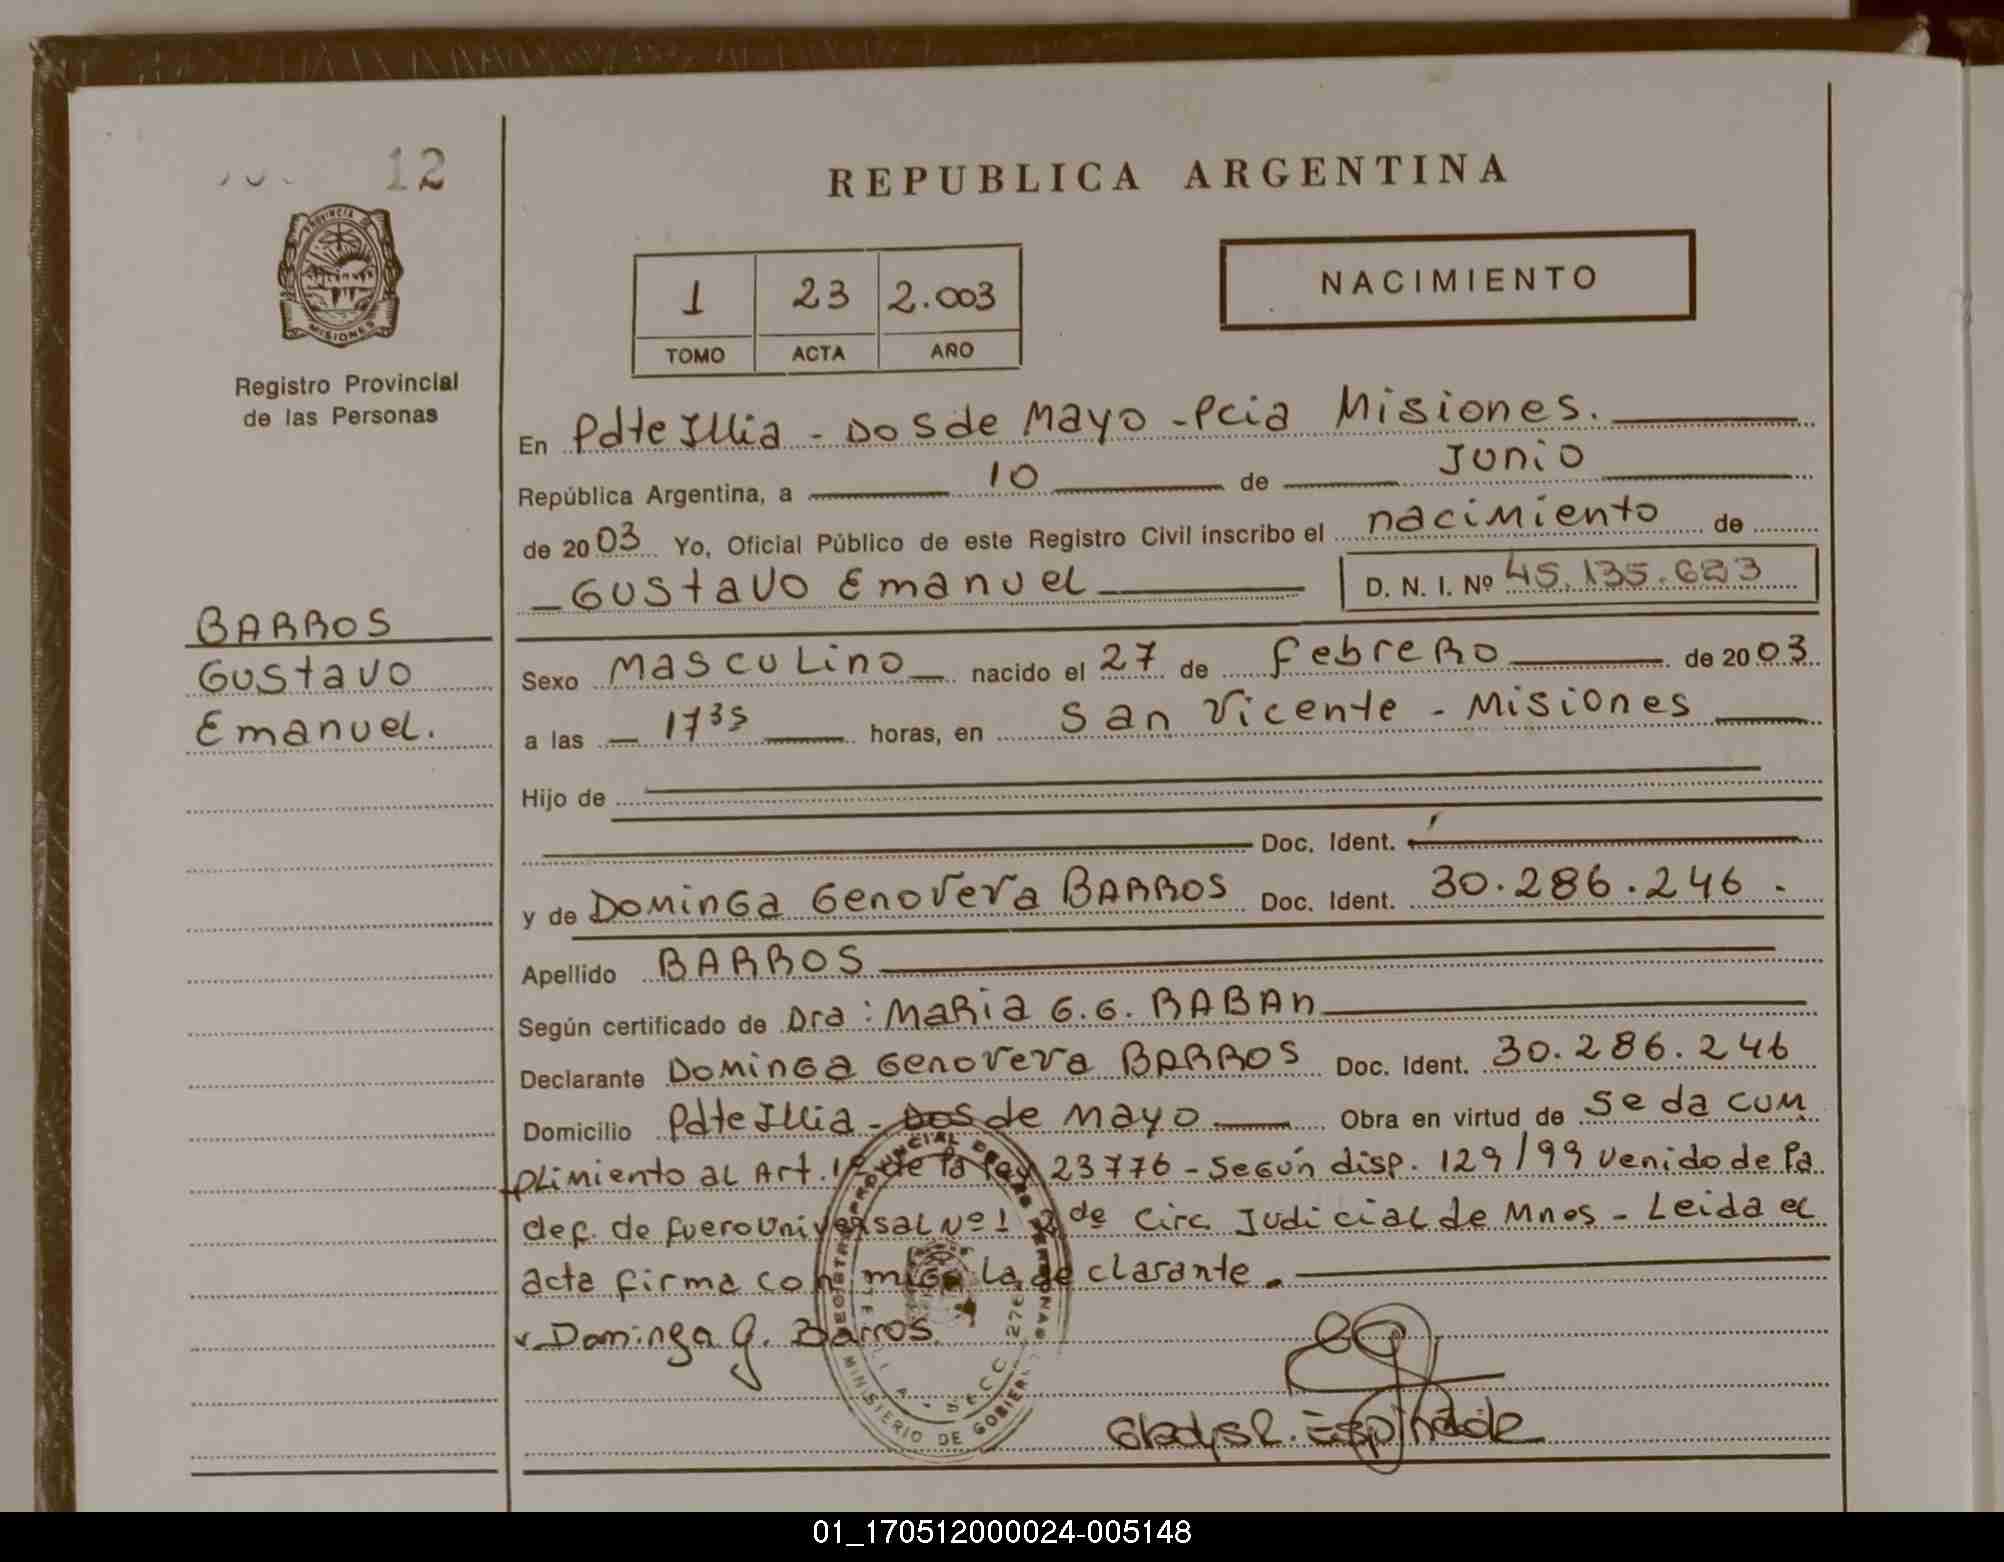 12
PROVINCIA DE
MISIONES
Registro Provincial
de las Personas
REPUBLICA ARGENTINA
1 23 2.003
TOMO ACTA AÑO
NACIMIENTO
En Pdte Illia - Dos de Mayo - Pcia Misiones.
República Argentina, a 10 de Junio
de 2003 Yo, Oficial Público de este Registro Civil inscribo el nacimiento de
Gustavo Emanuel D. N. I. Nº 45.135.683
BARROS
Gustavo
Emanuel.
Sexo Masculino nacido el 27 de Febrero de 2003
a las 17 35 horas, en San Vicente - Misiones
Hijo de
Doc. Ident.
y de Dominga Genoveva BARROS Doc. Ident. 30.286.246.
Apellido BARROS
Según certificado de Dra: Maria G.G. BABAN
Declarante Dominga Genoveva BARROS Doc. Ident. 30.286.246
Domicilio Pdte Illia - Dos de Mayo Obra en virtud de Se da cum
plimiento al Art. 1º de la ley 23776 - Según disp. 129/99 venido de la
def. de fuero universal Nº 1 2da Circ. Judicial de Mnes - Leida el
acta firma con migo la declarante.
Dominga G. Barros
REGISTRO PROVINCIAL DE LAS PERSONAS
MINISTERIO DE GOBIERNO
SECC. 276
Gladys R. Espindola
01_170512000024-005148